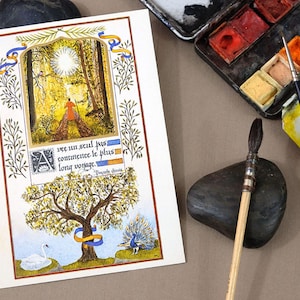 Avec un seul pas
commence le plus
long voyage.